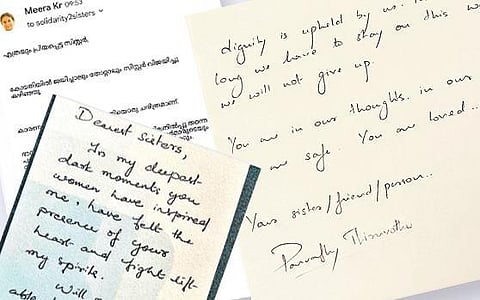 Meera Kr 09:53
to solidarity2sisters
എത്രയും പ്രിയപ്പെട്ട സിസ്റ്റർ,
കോടതിയിൽ ജയിച്ചാലും തോറ്റാലും സിസ്റ്റർ വിജയിച്ചു
കഴിഞ്ഞു
ചരിത്രമാണ്.
Dearest Sisters,
In my deepest
dark moments you
women have inspired
me, have felt the
presence of your
heart and fight lift
my spirit.
Will
dignity is upheld by us.
long we have to stay on this
we will not give up.
You are in our thoughts. in our
are safe. You are loved..
Your sister/friend/person..
Parvathy Thiruvothu